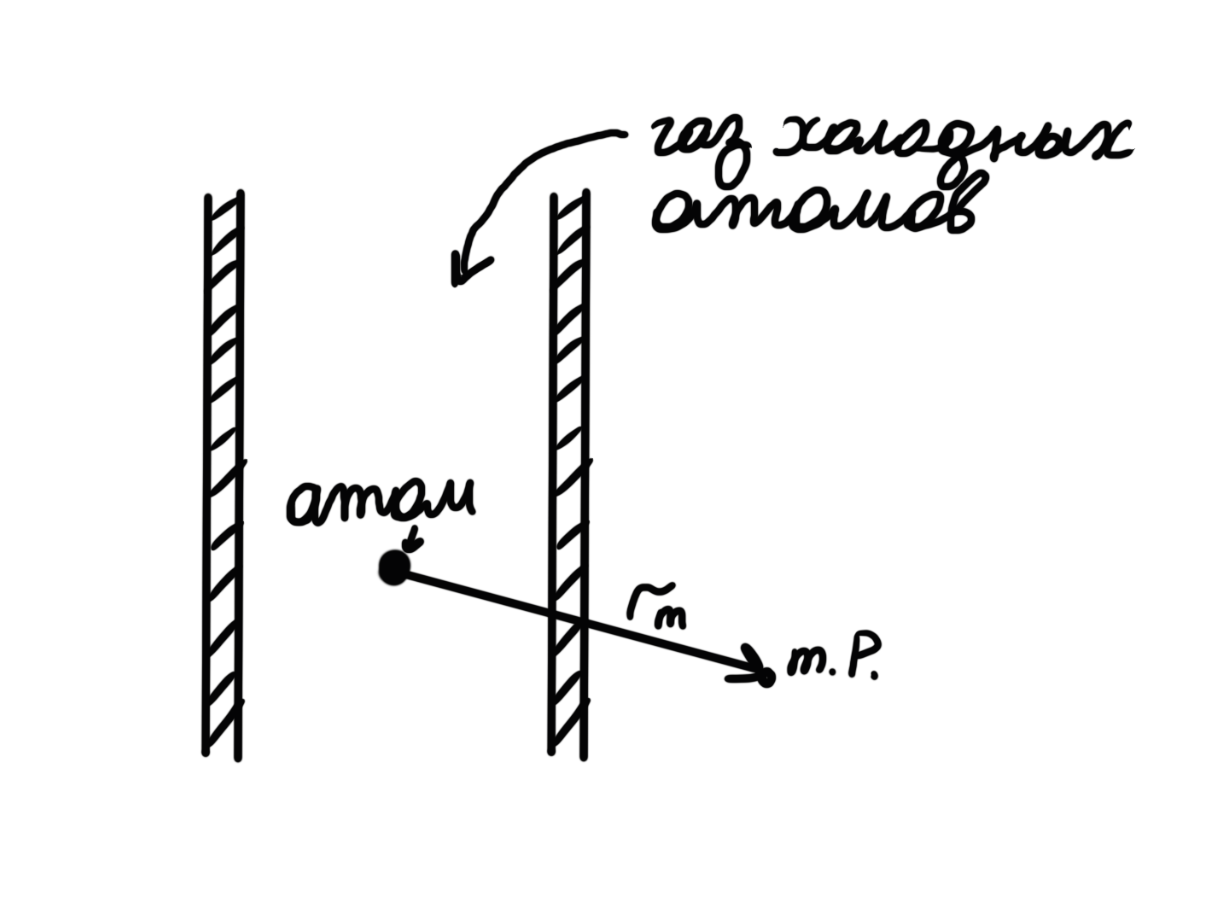 газ холодных
атомов
атом
r_m
т. P.